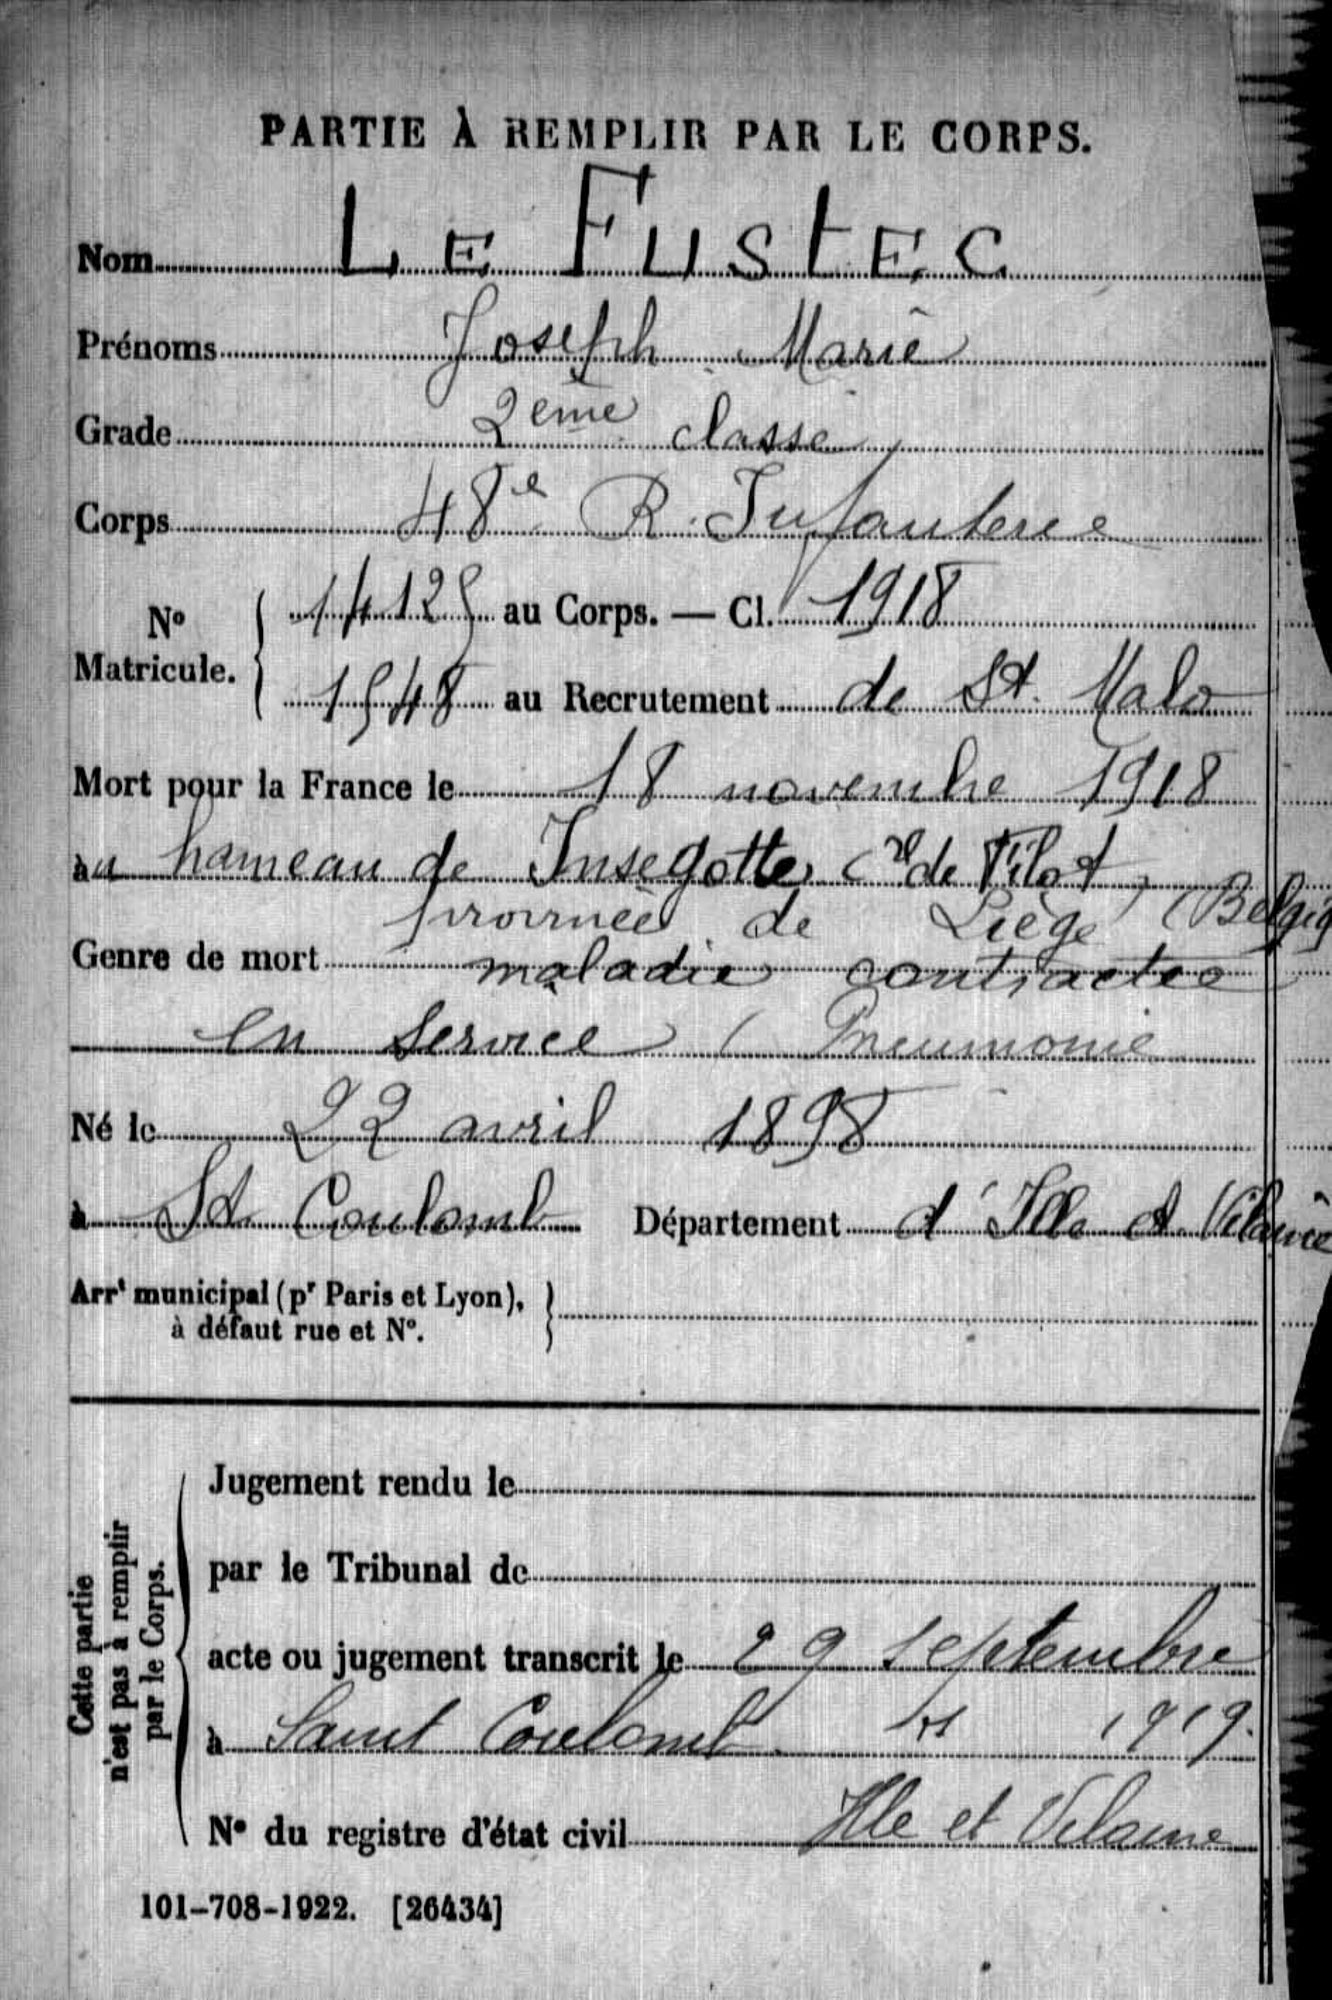 PARTIE À REMPLIR PAR LE CORPS.
Nom LE FUSTEC
Prénoms Joseph Marie
Grade 2ème classe
Corps 48e R. Infanterie
No Matricule. 14125 au Corps. — Cl. 1918
1548 au Recrutement de St. Malo
Mort pour la France le 18 novembre 1918
au hameau de Insegotte Cne de Filot
province de Liège (Belgiq
Genre de mort maladie contractée
en service ( Pneumonie
Né le 22 avril 1898
à St Coulomb Département d'Ille et Vilaine
Arrt municipal (pr Paris et Lyon),
à défaut rue et No.
Cette partie
n'est pas à remplir
par le Corps.
Jugement rendu le
par le Tribunal de
acte ou jugement transcrit le 29 septembre
à Saint Coulomb 1919.
No du registre d'état civil Ille et Vilaine
101-708-1922. [26434]